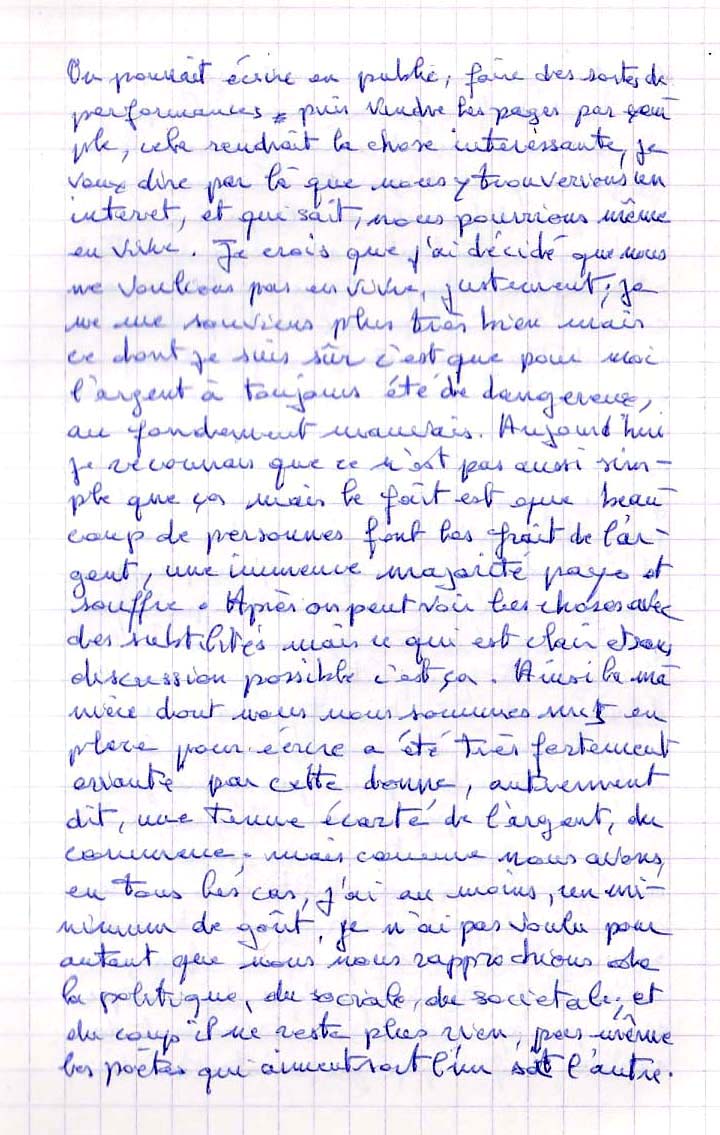 On pourrait écrire en public, faire des sortes de
performances, puis vendre les pages par cou
ple, cela rendrait la chose interessante, je
veux dire par là que nous y trouverions un
interet, et qui sait, nous pourrions même
en vivre. Je crois que j'ai décidé que nous
ne voulions pas en vivre, justement, je
ne me souviens plus très bien mais
ce dont je suis sûr c'est que pour moi
l'argent à toujours été de dangereux,
au fondement mauvais. Aujourd'hui
je reconnais que ce n'est pas aussi sim-
ple que ça mais le fait est que beau-
coup de personnes font les frait de l'ar-
gent, une immence majorité paye et
souffre. Après on peut voir les choses avec
des subtilités mais ce qui est clair et sans
discussion possible c'est ça. Ainsi la ma
nière dont nous nous sommes mis en
place pour écrire a été très fortement
par cette donne, autrement
dit, une tenue écarté de l'argent, du
commerce, mais comme nous avons,
en tous les cas, j'ai au moins, un mi-
nimum de goût, je n'ai pas voulu pour
autant que nous nous rapprochions de
la politique, du sociale, du societale, et
du coup il ne reste plus rien, pas même
les poètes qui aiment soit l'un soit l'autre.